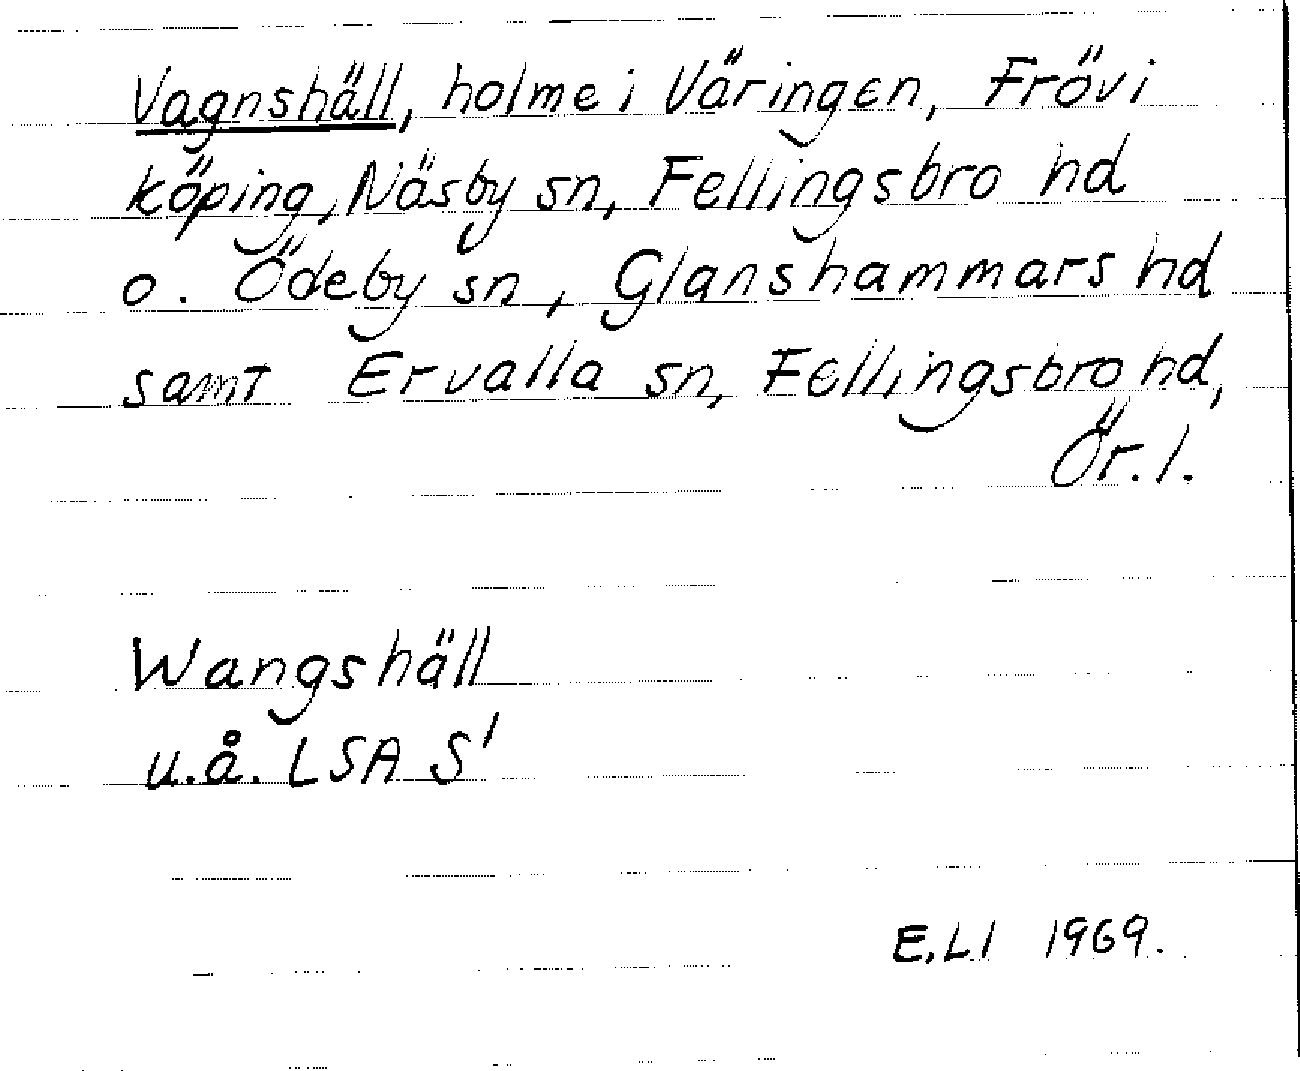 Vagnshäll, holme i Väringen, Frövi
köping, Näsby sn, Fellingsbro hd
o. Ödeby sn, Glanshammars hd
samt Ervalla sn, Fellingsbro hd,
Ör. l.
Wangshäll
u.å. LSA S'
E.LI 1969.